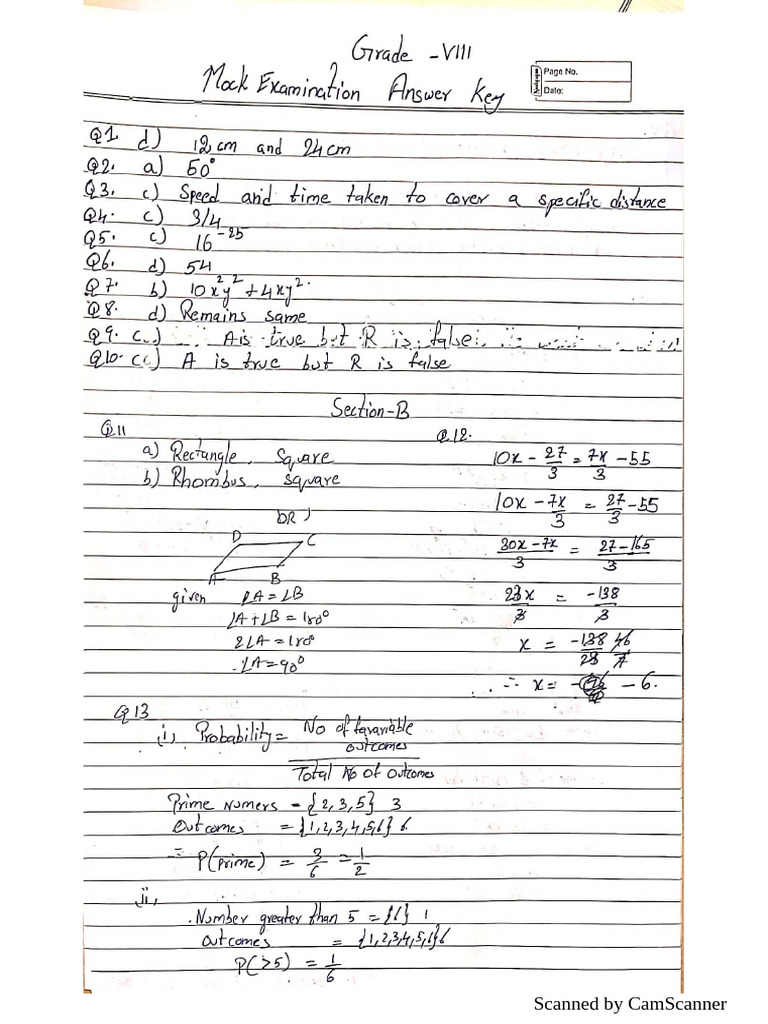 Grade -VIII
Mock Examination Answer Key
Page No.
Date:
Q1. d) 12cm and 24cm
Q2. a) 50°
Q3. c) Speed and time taken to cover a specific distance
Q4. c) 3/4
Q5. c) 16⁻²⁵
Q6. d) 54
Q7. b) 10x²y² + 4xy²
Q8. d) Remains same
Q9. c) A is true but R is false
Q10. c) A is true but R is false
Section-B
Q11
a) Rectangle, Square
b) Rhombus, square
OR
D C
A B
given ∠A = ∠B
∠A + ∠B = 180°
2∠A = 180°
∠A = 90°
Q12.
10x - 27/3 = 7x/3 - 55
10x - 7x/3 = 27/3 - 55
30x - 7x/3 = 27 - 165/3
23x/3 = -138/3
x = -138/23
∴ x = - 6.
Q13
i) Probability = No of favariable outcomes
Total No of outcomes
Prime Numers = {2,3,5} 3
Outcomes = {1,2,3,4,5,6} 6
∴ P(prime) = 3/6 = 1/2
ii)
Number greater than 5 = {6} 1
outcomes = {1,2,3,4,5,6} 6
P(>5) = 1/6
Scanned by CamScanner